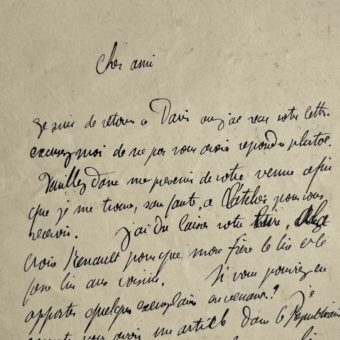 Cher ami
Je suis de retour à Paris où j'ai reçu votre lettre.
excusez moi de ne pas vous avoir répondu plutôt.
Veuillez donc me prévenir de votre venue afin
que je me trouve, sans faute, à l'atelier pour vous
recevoir. J'ai dû laisser votre livre,
Croix Renault pour que mon frère le lise et le
fasse lire aux voisins. Si vous pouviez en
apporter quelques exemplaires en venant?
un article dans le Républicain